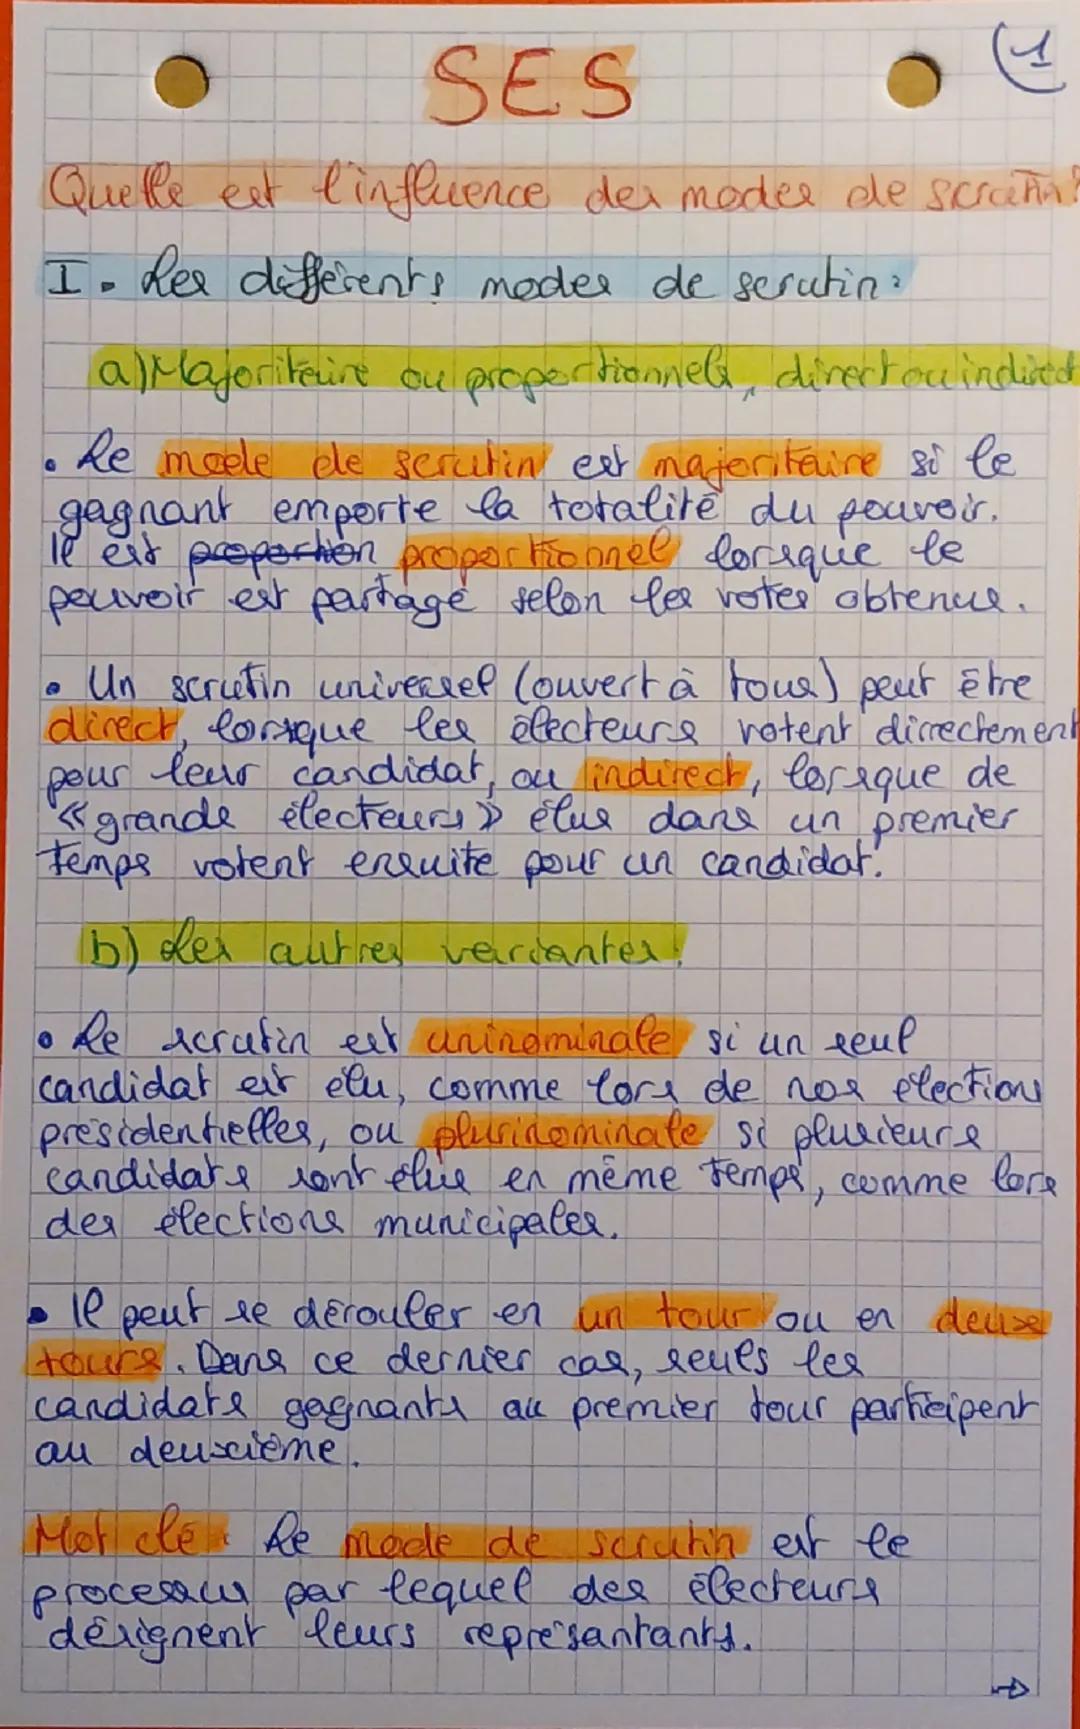 1
SES
Quelle est l'influence des modes de scrutin?
I. Les différents modes de scrutin:
a) Majoritaire ou proportionnels, direct ou indirect
• Le mode de scrutin est majoritaire si le
gagnant emporte la totalité du pouvoir.
Il est proportion proportionnel lorsque le
pouvoir est partagé selon les votes obtenus.
• Un scrutin universel (ouvert à tous) peut être
direct, lorsque les électeurs votent dirrectement
pour leur candidat, ou indirect, lorsque de
«grands électeurs» élus dans un premier
temps votent ensuite pour un candidat.
b) Les autres variantes:
• Le scrutin est uninominale si un seul
candidat est élu, comme lors de nos élections
présidentielles, ou plurinominale si plusieurs
candidats sont élus en même temps, comme lors
des élections municipales.
• Il peut se dérouler en un tour ou en deux
tours. Dans ce dernier cas, seules les
candidats gagnants au premier tour participent
au deuxième.
Mot clé: Le mode de scrutin est le
processus par lequel des électeurs
désignent leurs représantants.
→